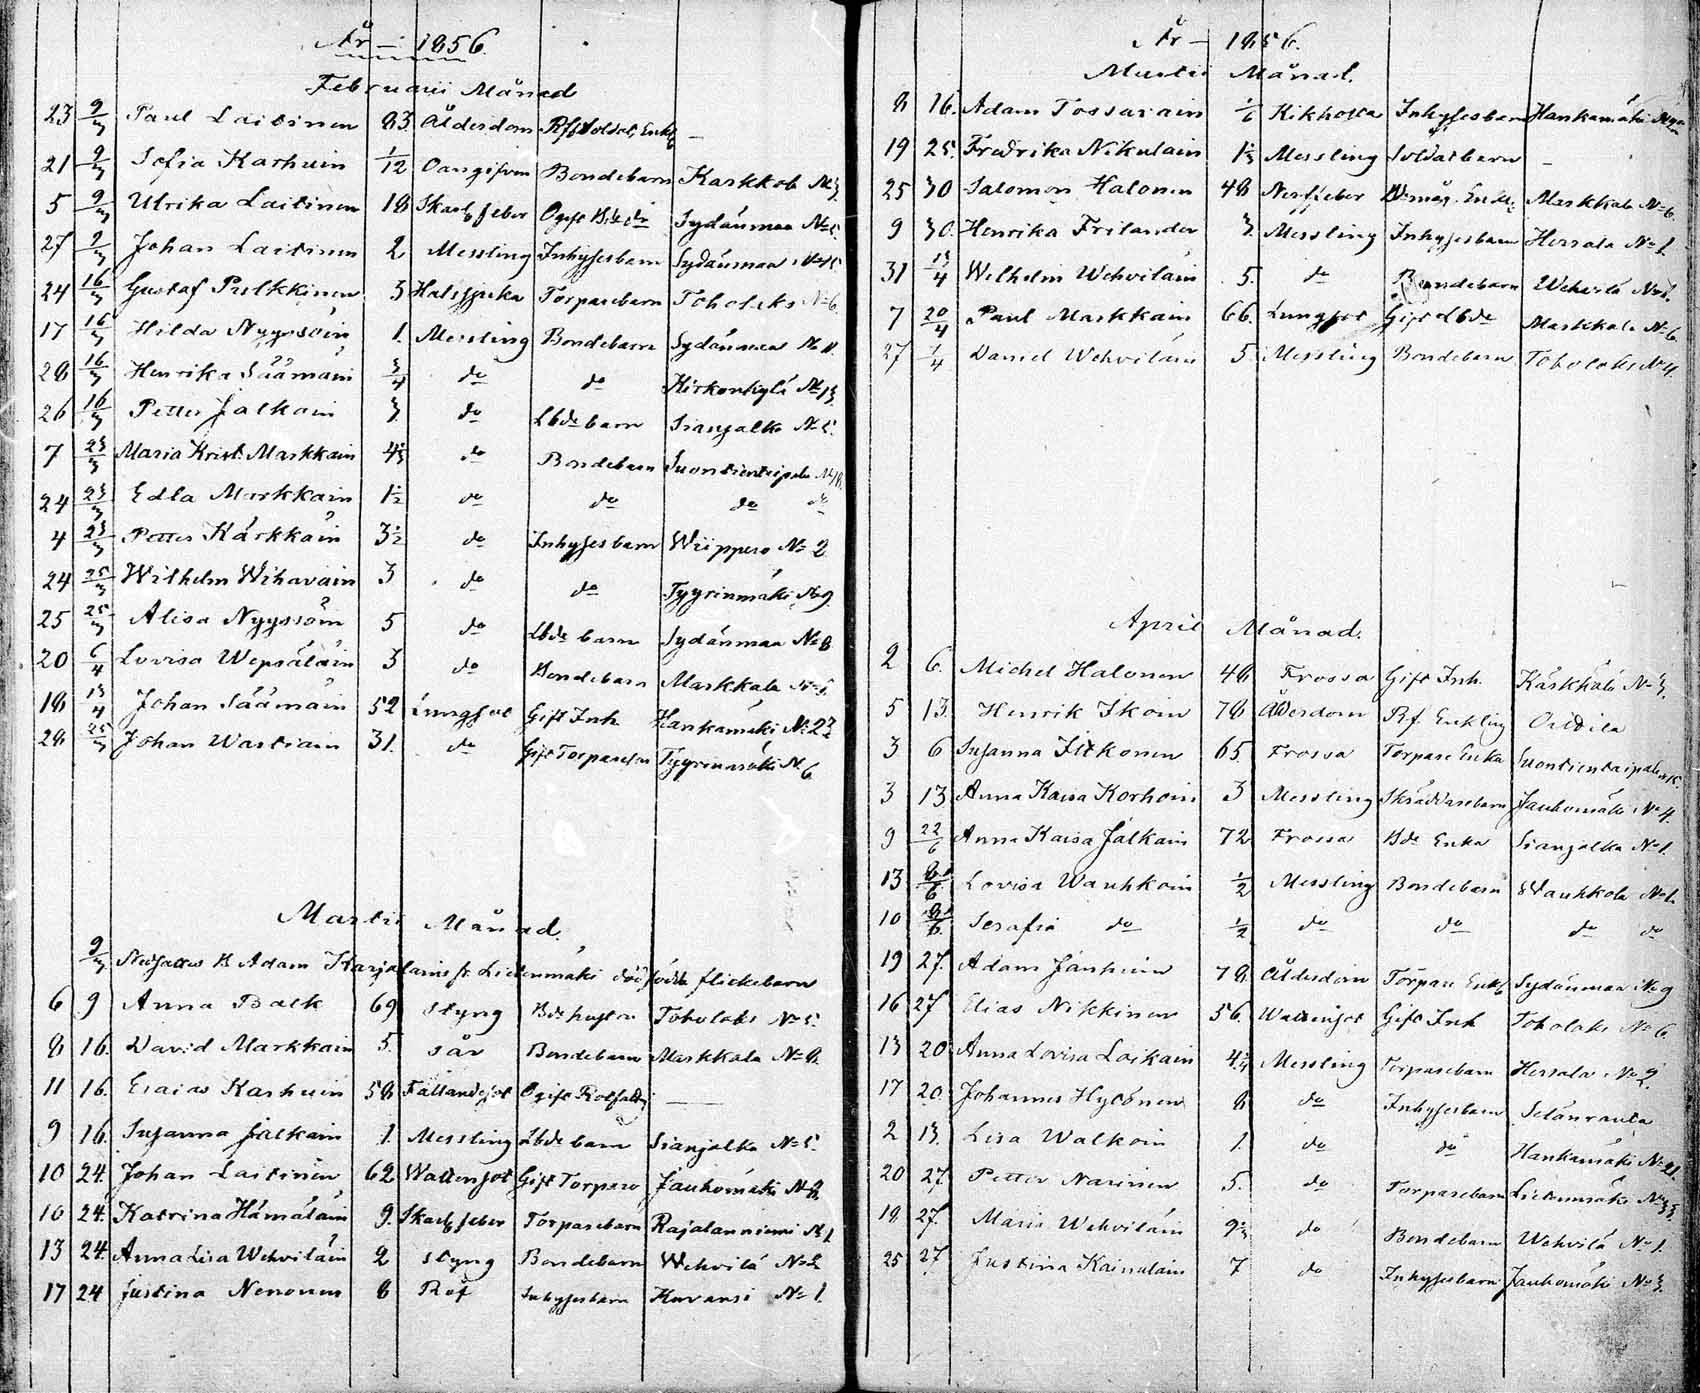 År – 1856.
Februarii Månad
23 9/3 Paul Laitinen 83. Ålderdom
21 9/3 Sofia Karhuin 1/12 Oangifven Bondebarn Karkkola No 3.
5 9/3 Ulrika Laitinen 18 Skarl. feber Ogift Sydänmaa No 5.
27 9/3 Johan Laitinen 2 Messling Inhysesbarn Sydänmaa No 15
24 16/3 Gustaf Pulkkinen 3 Halssjuka Torparebarn Toholaks No 6.
17 16/3 Hilda Nyyssöin 1. Messling Bondebarn Sydänmaa No 11.
28 16/3 Henrika Säämäin 3/4 do do Kirkonkylä No 13
26 16/3 Petter Jalkain 3. do Lbde barn Sianjalka No 5.
7 23/3 Maria Krist. Markkain do Bondebarn Suontientaipale No 18.
24 23/3 Edla Markkain 1 1/2 do do do do
4 23/3 Petter Kärkkäin 3 1/2 do Inhysesbarn Wiippero No 2
24 25/3 Wilhelm Wihavain 3 do do Tyyrinmäki No 9.
25 25/3 Alisa Nyyssöin 5 do Lbde barn Sydänmaa No 8
20 6/4 Lovisa Wepsäläin 3 do Bondebarn Markkala No 1.
18 13/4 Johan Säämäin 52 Lungsot Gift Inh. Hankamäki No 22
28 25/3 Johan Wartiain 31. do Gift Torpareson Tyyrinmäki N. 6
Martii Månad.
9/3 B Adam Karjalains fr. Lietenmäki dödfödda flickebarn
6 9 Anna Balk 69 Styng Bde hustru Toholaks No 5.
8 16. David Markkain 5. Sår Bondebarn Markkala No 8.
11 16. Esaias Karhuin 58 Fallandesot Ogift Rotfattig —
9 16. Susanna Jalkain 1. Messling Lbde barn Sianjalka No 5.
10 24. Johan Laitinen 62 Wattensot Gift Torpare Jauhomäki No 8.
10 24. Katrina Hämäläin 9. Skarl. feber Torparebarn Rajalanniemi No 1
13 24. Anna Lisa Wehviläin 2 Styng Bondebarn Wehvilä No 2
17 24 Justina Nenonen 8 Röt Inhysesbarn Huvansi No 1.
År – 1856.
Martii Månad.
8 16. Adam Tossavain 1/6 Kikhosta Inhysesbarn Hankamäki
19 25. Fredrika Nikulain Messling Soldatbarn –
25 30 Salomon Halonen 48 Nerffeber Markkala No 6.
9 30. Henrika Frilander 3. Messling Inhysesbarn Herrala No 1.
31 13/4 Wilhelm Wehviläin 5. do Bondebarn Wehvilä No 1.
7 20/4 Paul Markkain 66. Lungsot Gift Lbde Markkala No 6.
27 7/4 Daniel Wehviläin 5 Messling Bondebarn Toholaks No 4.
April Månad.
2 6. Michel Halonen 48 Frossa Gift Inh. Karkkala No 3.
5 13. Henrik Ikoin 78 Ålderdom Rf. Enkling Oidila
3 6 Susanna Itkonen 65 Frossa Torpare Enka Suontientaipale
3 13 Anna Kaisa Korhoin 3 Messling Skräddarebarn Jauhomäki No 4.
9 22/6 Anna Kaisa Jalkain 72 Frossa Bde Enka Sianjalka No 1.
13 Lovisa Wauhkoin 1/2 Messling Bondebarn Wauhkola No 1.
10 Serafia do 1/2 do do do do
19 27. Adam Jänhuin 78 Ålderdom Torpare Enkl. Sydänmaa No 9
16 27 Elias Nikkinen 56. Wattensot Gift Inh Toholaks No 6.
13 20 Anna Lovisa Loikain Messling Torparebarn Herrala No 2.
17 20. Johannes Hytönen 8 do Inhysesbarn Selänranta
2 13. Lisa Walkoin 1. do do Hankamäki No 21.
20 27. Petter Narinen 5. do Torparebarn Lietenmäki
18 27. Maria Wehviläin do Bondebarn Wehvilä No 1.
25 27 Justina Kainulain 7 do Inhysesbarn Jauhomäki No 3.